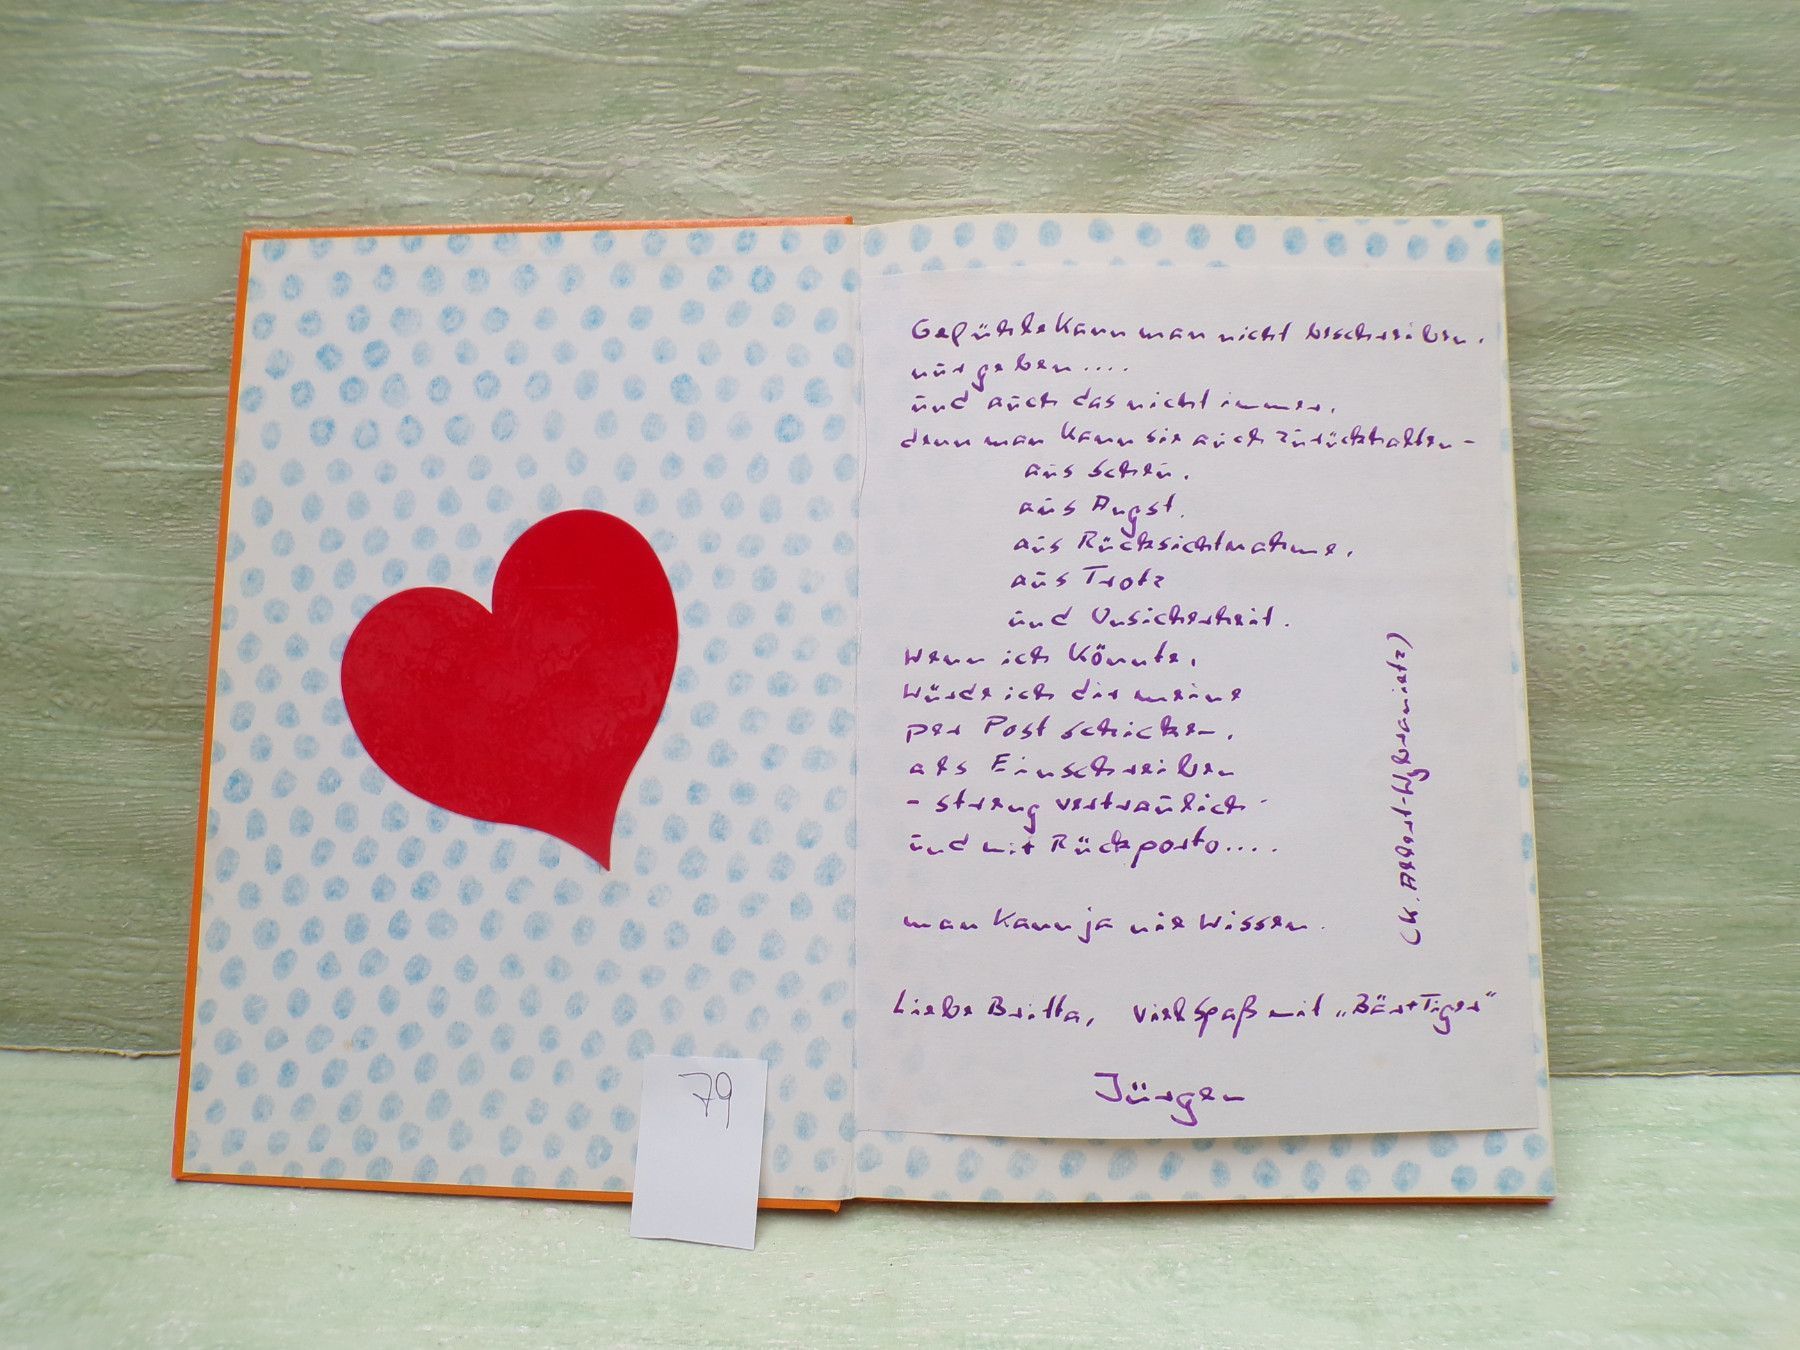 Gefühle kann man nicht beschreiben,
nur geben....
und auch das nicht immer,
denn man kann sie auch zurückhalten -
aus Scheu,
aus Angst,
aus Rücksichtnahme,
aus Trotz
und Unsicherheit.
Wenn ich könnte,
würde ich dir meine
per Post schicken,
als Einschreiben
- streng vertraulich -
und mit Rückporto....
man kann ja nie wissen.
(K. Allert-Wybranietz)
Liebe Britta, viel Spaß mit „Bär + Tiger"
Jürgen
79